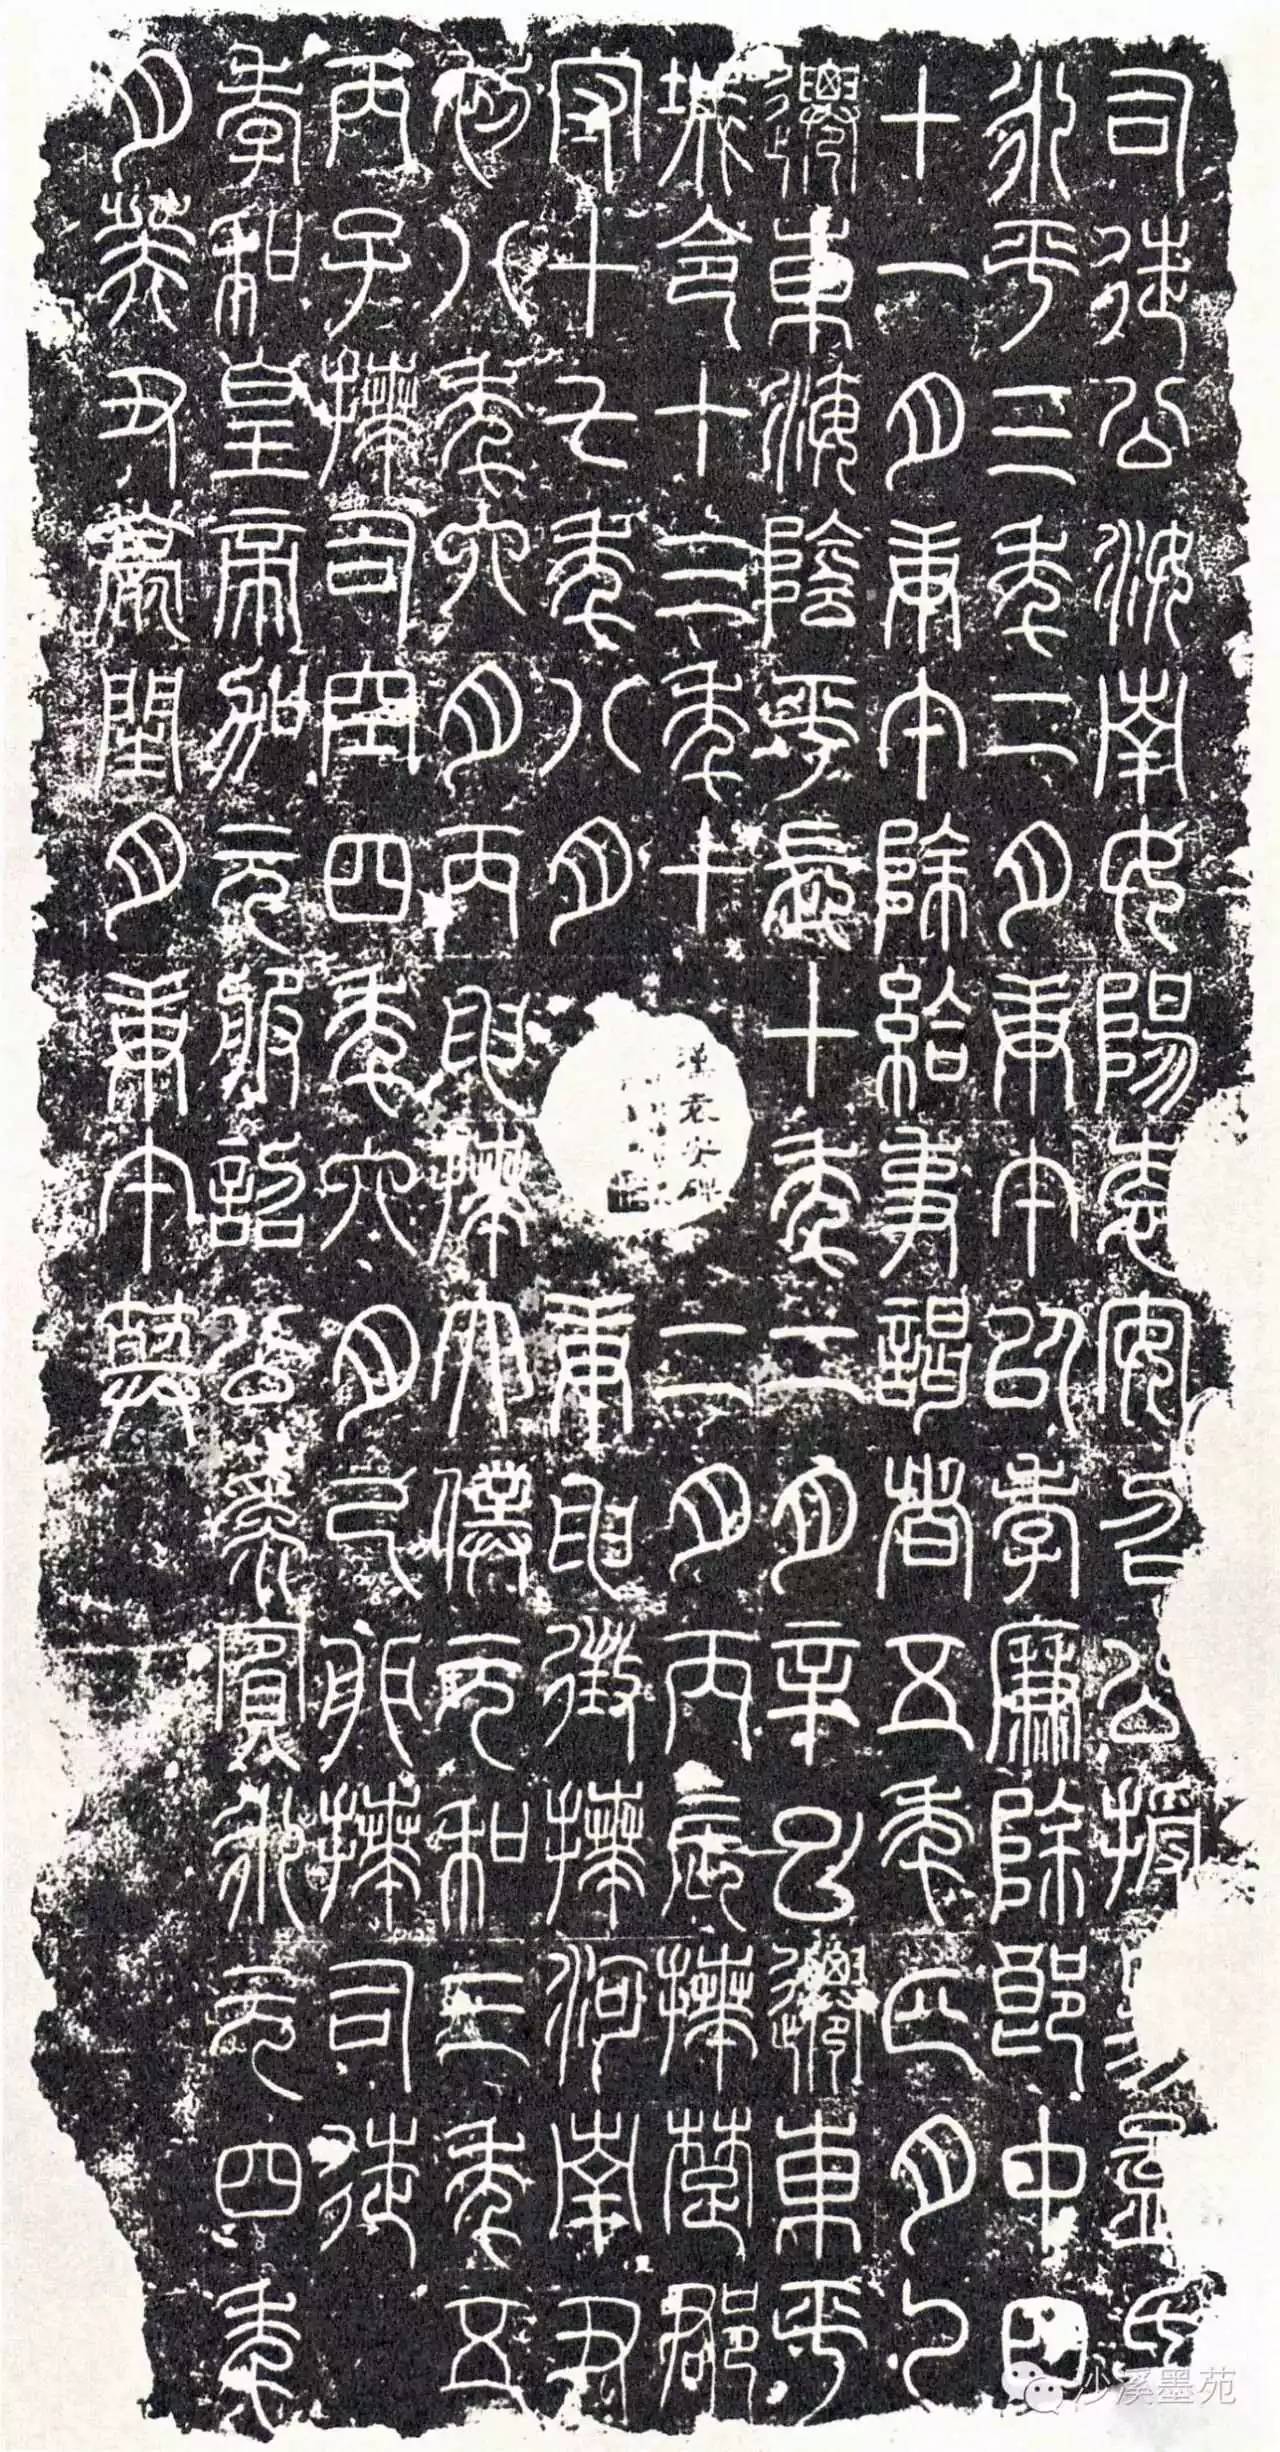 司徒公汝南女陽袁安召公授易孟氏
永平三年二月庚午以孝廉除郎中四
十一月庚午除給事謁者五年正月乙
遷東海陰平長十年二月辛巳遷東平
城令十三年十二月丙辰拜楚郡
守十七年八月庚申徵拜河南尹
初八年六月丙申拜太僕元和三年五
丙子拜司空四年六月己卯拜司徒
孝和皇帝加元服詔公為賓永元四年
月癸丑薨閏月庚午葬
漢袁安碑
沙溪墨苑